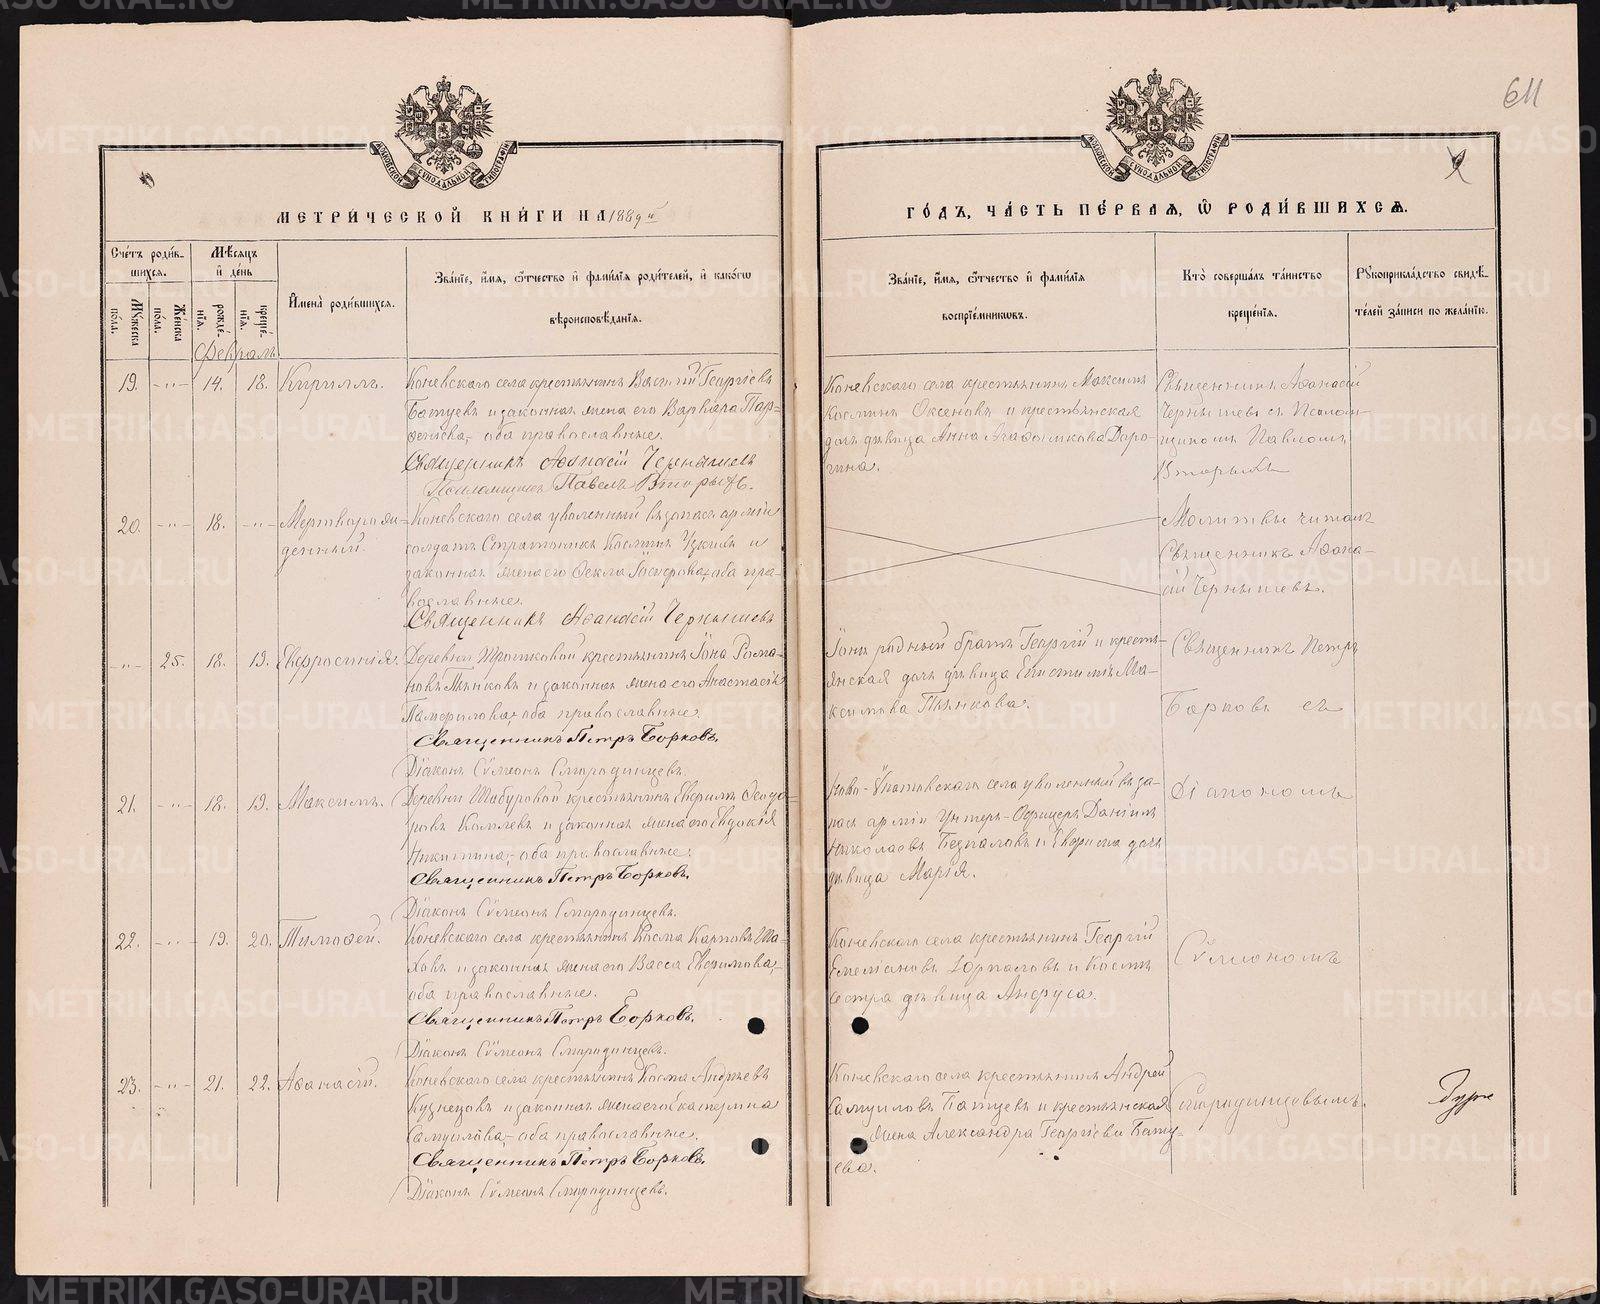 611
МЕТРИ́ЧЕСКОЙ КНИ́ГИ НА 1889 й
ГО́ДЪ, ЧА́СТЬ ПЕ́РВАЯ, Ѡ РОДИ́ВШИХСѦ.
Сче́тъ роди́в-
шихся.
Мѣ́сяцъ
и́ де́нь
Му́жеска
по́ла.
Же́нска
по́ла.
рожде́-
нїѧ.
креще́-
нїѧ.
И҆мена̀ роди́вшихся.
Зва́нїе, и҆́мя, ѻ҆́тчество и҆ фами́лїя роди́телей, и҆ како́гѡ
вѣроисповѣ́данїя.
Зва́нїе, и҆́мя, ѻ҆́тчество и҆ фами́лїя
воспрїе́мникѡвъ.
Кто̀ соверша́лъ та́инство
креще́нїя.
Рꙋкоприкла́дство свидѣ́-
телей за́писи по жела́нїю.
Февраль
19. -"- 14. 18. Кириллъ.
Коневскаго села крестьянинъ Василій Георгіевъ
Батуевъ и законная жена его Варвара Пар-
ѳеніева, оба православные.
Священникъ Аѳанасій Чернышевъ
Псаломщикъ Павелъ Вторыхъ.
Коневскаго села крестьянинъ Максимъ
Косминъ Оксеновъ и крестьянская
дочь дѣвица Анна Агаѳоникова Доро-
гина.
Священникъ Аѳанасій
Чернышевъ съ Псалом-
щикомъ Павломъ
Вторыхъ
20. -"- 18. -"- Мертворож-
денный.
Коневскаго села уволенный въ запасъ арміи
солдатъ Стратоникъ Косминъ Узкихъ и
законная жена его Ѳекла, оба пра-
вославные.
Священникъ Аѳанасій Чернышевъ
Молитвы читалъ
Священникъ Аѳана-
сій Чернышевъ.
-"- 25. 18. 19. Евфросинія.
Деревни крестьянинъ Іона Рома-
новъ Пьянковъ и законная жена его Анастасія
Памфилова, оба православные.
Священникъ Петръ Борковъ.
Діаконъ Сѵмеонъ Смородинцевъ.
Іоны родный братъ Георгій и кресть-
янская дочь дѣвица Епистимія Ма-
ксимова Пьянкова.
Священникъ Петръ
Борковъ съ
21. -"- 18. 19. Максимъ.
Деревни Шабуровой крестьянинъ Евфимъ Ѳеодо-
ровъ Комлевъ и законная жена его Евдокія
Никитина, оба православные.
Священникъ Петръ Борковъ.
Діаконъ Сѵмеонъ Смородинцевъ.
Ново-Ипатовскаго села уволенный въ за-
пасъ арміи Унтеръ-Офицеръ Даніилъ
Николаевъ Безпаловъ и Евфима дочь
дѣвица Марія.
Діакономъ
22. -"- 19. 20. Тимоѳей.
Коневскаго села крестьянинъ Косма Карповъ Ша-
ховъ и законная жена его Васса Евфимова,
оба православные.
Священникъ Петръ Борковъ.
Діаконъ Сѵмеонъ Смородинцевъ.
Коневскаго села крестьянинъ Георгій
Емеліановъ и Космы
сестра дѣвица Анфуса.
Сѵмеономъ
23. -"- 21. 22. Аѳанасій.
Коневскаго села крестьянинъ Косма Андреевъ
Кузнецовъ и законная жена его Екатерина
Самуилова, оба православные.
Священникъ Петръ Борковъ.
Діаконъ Сѵмеонъ Смородинцевъ.
Коневскаго села крестьянинъ Андрей
Самуиловъ Батуевъ и крестьянская
жена Александра Георгіева Бату-
ева.
Смородинцевымъ.
METRIKI.GASO-URAL.RU